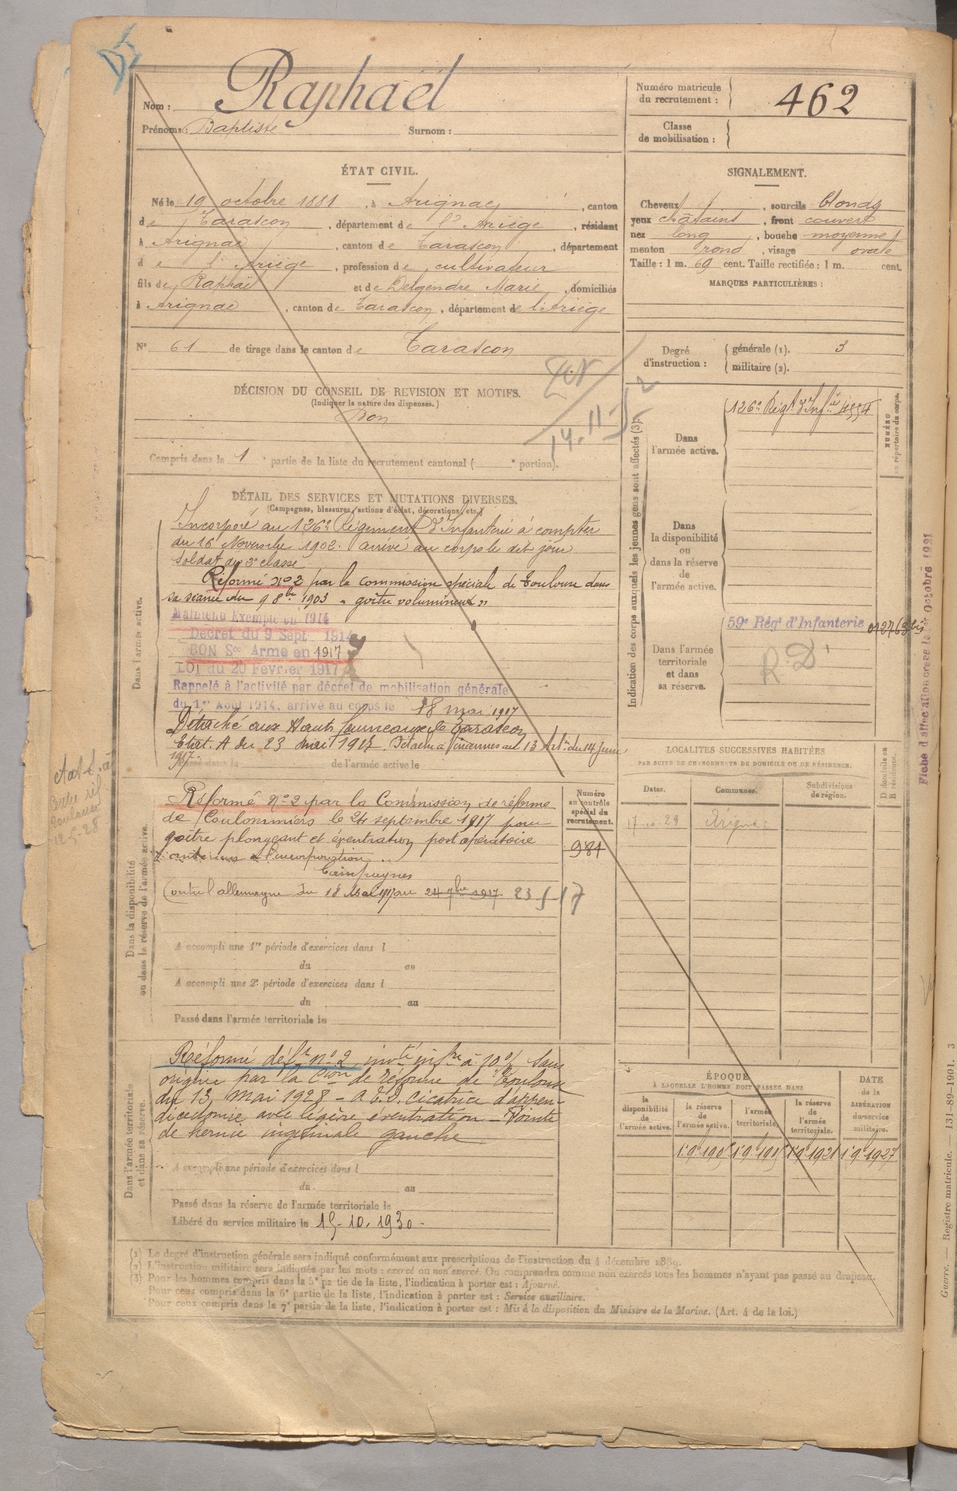 Nom : Raphaël
Prénoms : Baptiste Surnom :
Numéro matricule du recrutement : 462
Classe de mobilisation :
ÉTAT CIVIL.
Né le 19 octobre 1881, à Arignac, canton
de Tarascon, département de l'Ariège, résidant
à Arignac, canton de Tarascon, département
de l'Ariège, profession de cultivateur
fils de Raphaël et de Delgendre Marie, domiciliés
à Arignac, canton de Tarascon, département de l'Ariège
N° 61 de tirage dans le canton de Tarascon
SIGNALEMENT.
Cheveux , sourcils blonds
yeux châtains, front couvert
nez long, bouche moyenne
menton rond, visage ovale
Taille : 1 m. 69 cent. Taille rectifiée : 1 m. cent.
MARQUES PARTICULIÈRES :
Degré d'instruction : générale (1). 3
militaire (2).
DÉCISION DU CONSEIL DE REVISION ET MOTIFS.
(Indiquer la nature des dispenses.)
Bon
14-11-
Compris dans la 1e partie de la liste du recrutement cantonal ( e portion).
DÉTAIL DES SERVICES ET MUTATIONS DIVERSES.
(Campagnes, blessures, actions d'éclat, décorations, etc.)
Dans l'armée active.
Incorporé au 126e Régiment d'Infanterie à compter
du 16 Novembre 1902. arrivé au corps le dit jour
soldat de 2e classe
Réformé n°2 par la commission spéciale de Toulouse dans
sa séance du 9 8bre 1903 « goitre volumineux »
Maintenu Exempté en 1914
Décret du 9 Sept 1914
BON Sce Armé en 1917
LOI du 20 Février 1917
Rappelé à l'activité par décret de mobilisation générale
du 1er Août 1914, arrivé au corps le 18 mai 1917
Détaché aux Hauts fourneaux de Tarascon
Etat. A du 23 mai 1917 Détaché à Vincennes au 13 Art. du 14 juin
1917
de l'armée active le
Indication des corps auxquels les jeunes gens sont affectés (3).
Dans l'armée active.
126e Régt d'Infie
NUMÉRO au répertoire du corps.
Dans la disponibilité ou dans la réserve de l'armée active.
Dans l'armée territoriale et dans sa réserve.
59e Régt d'Infanterie
R D
LOCALITÉS SUCCESSIVES HABITÉES
PAR SUITE DE CHANGEMENTS DE DOMICILE OU DE RÉSIDENCE.
Dates. Communes. Subdivisions de région.
17 29 Arignac
Dans la disponibilité ou dans la réserve de l'armée active.
Réformé n°2 par la Commission de réforme
de Coulommiers le 24 septembre 1917 pour
goitre plongeant et éventration post opératoire
antérieurs à l'incorporation
Campagnes
Contre l'allemagne du 18 Mai 1917 au 24 7bre 1917
Numéro au contrôle spécial du recrutement.
984
A accompli une 1re période d'exercices dans l
du au
A accompli une 2e période d'exercices dans l
du au
Passé dans l'armée territoriale le
Dans l'armée territoriale et dans sa réserve.
Réformé déft n°2 invté infre à 10% sans
origine par la Cion de réforme de Toulouse
du 13 mai 1928 - a E.S. cicatrice d'appen-
dicectomie avec légère éventration - Pointe
de hernie inguinale gauche
A accompli une période d'exercices dans l
du au
Passé dans la réserve de l'armée territoriale le
Libéré du service militaire le 15-10-1930
ÉPOQUE
À LAQUELLE L'HOMME DOIT PASSER DANS
la disponibilité de l'armée active.
la réserve de l'armée active.
l'armée territoriale.
la réserve de l'armée territoriale.
DATE de la LIBÉRATION du service militaire.
1 9 1927
(1) Le degré d'instruction générale sera indiqué conformément aux prescriptions de l'instruction du 4 décembre 1889.
(2) L'instruction militaire sera indiquée par les mots : exercé ou non exercé. On comprendra comme non exercés tous les hommes n'ayant pas passé au drapeau.
(3) Pour les hommes compris dans la 5e partie de la liste, l'indication à porter est : Ajourné.
Pour ceux compris dans la 6e partie de la liste, l'indication à porter est : Service auxiliaire.
Pour ceux compris dans la 7e partie de la liste, l'indication à porter est : Mis à la disposition du Ministre de la Marine. (Art. 4 de la loi.)
Guerre. — Registre matricule. — 131-89-1901. 3